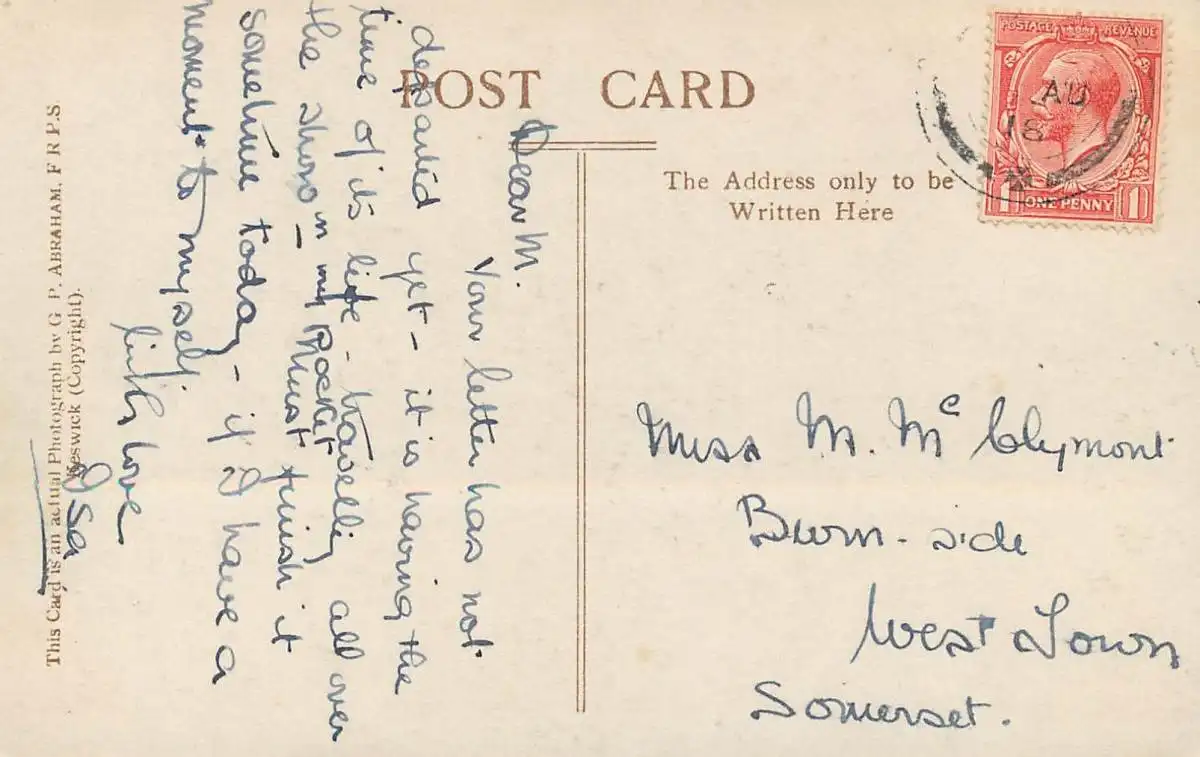 POST CARD
The Address only to be
Written Here
POSTAGE REVENUE
AU
18
1 ONE PENNY 1
Dear M.
Your letter has not
departed yet – it is having the
time of its life – travelling all over
the shore – in my pocket
Must finish it
sometime today – if I have a
moment to myself.
With love
Isa
Miss M. McClymont
Burn-side
West Town
Somerset.
This Card is an actual Photograph by G. P. ABRAHAM, F R P S
Keswick (Copyright).